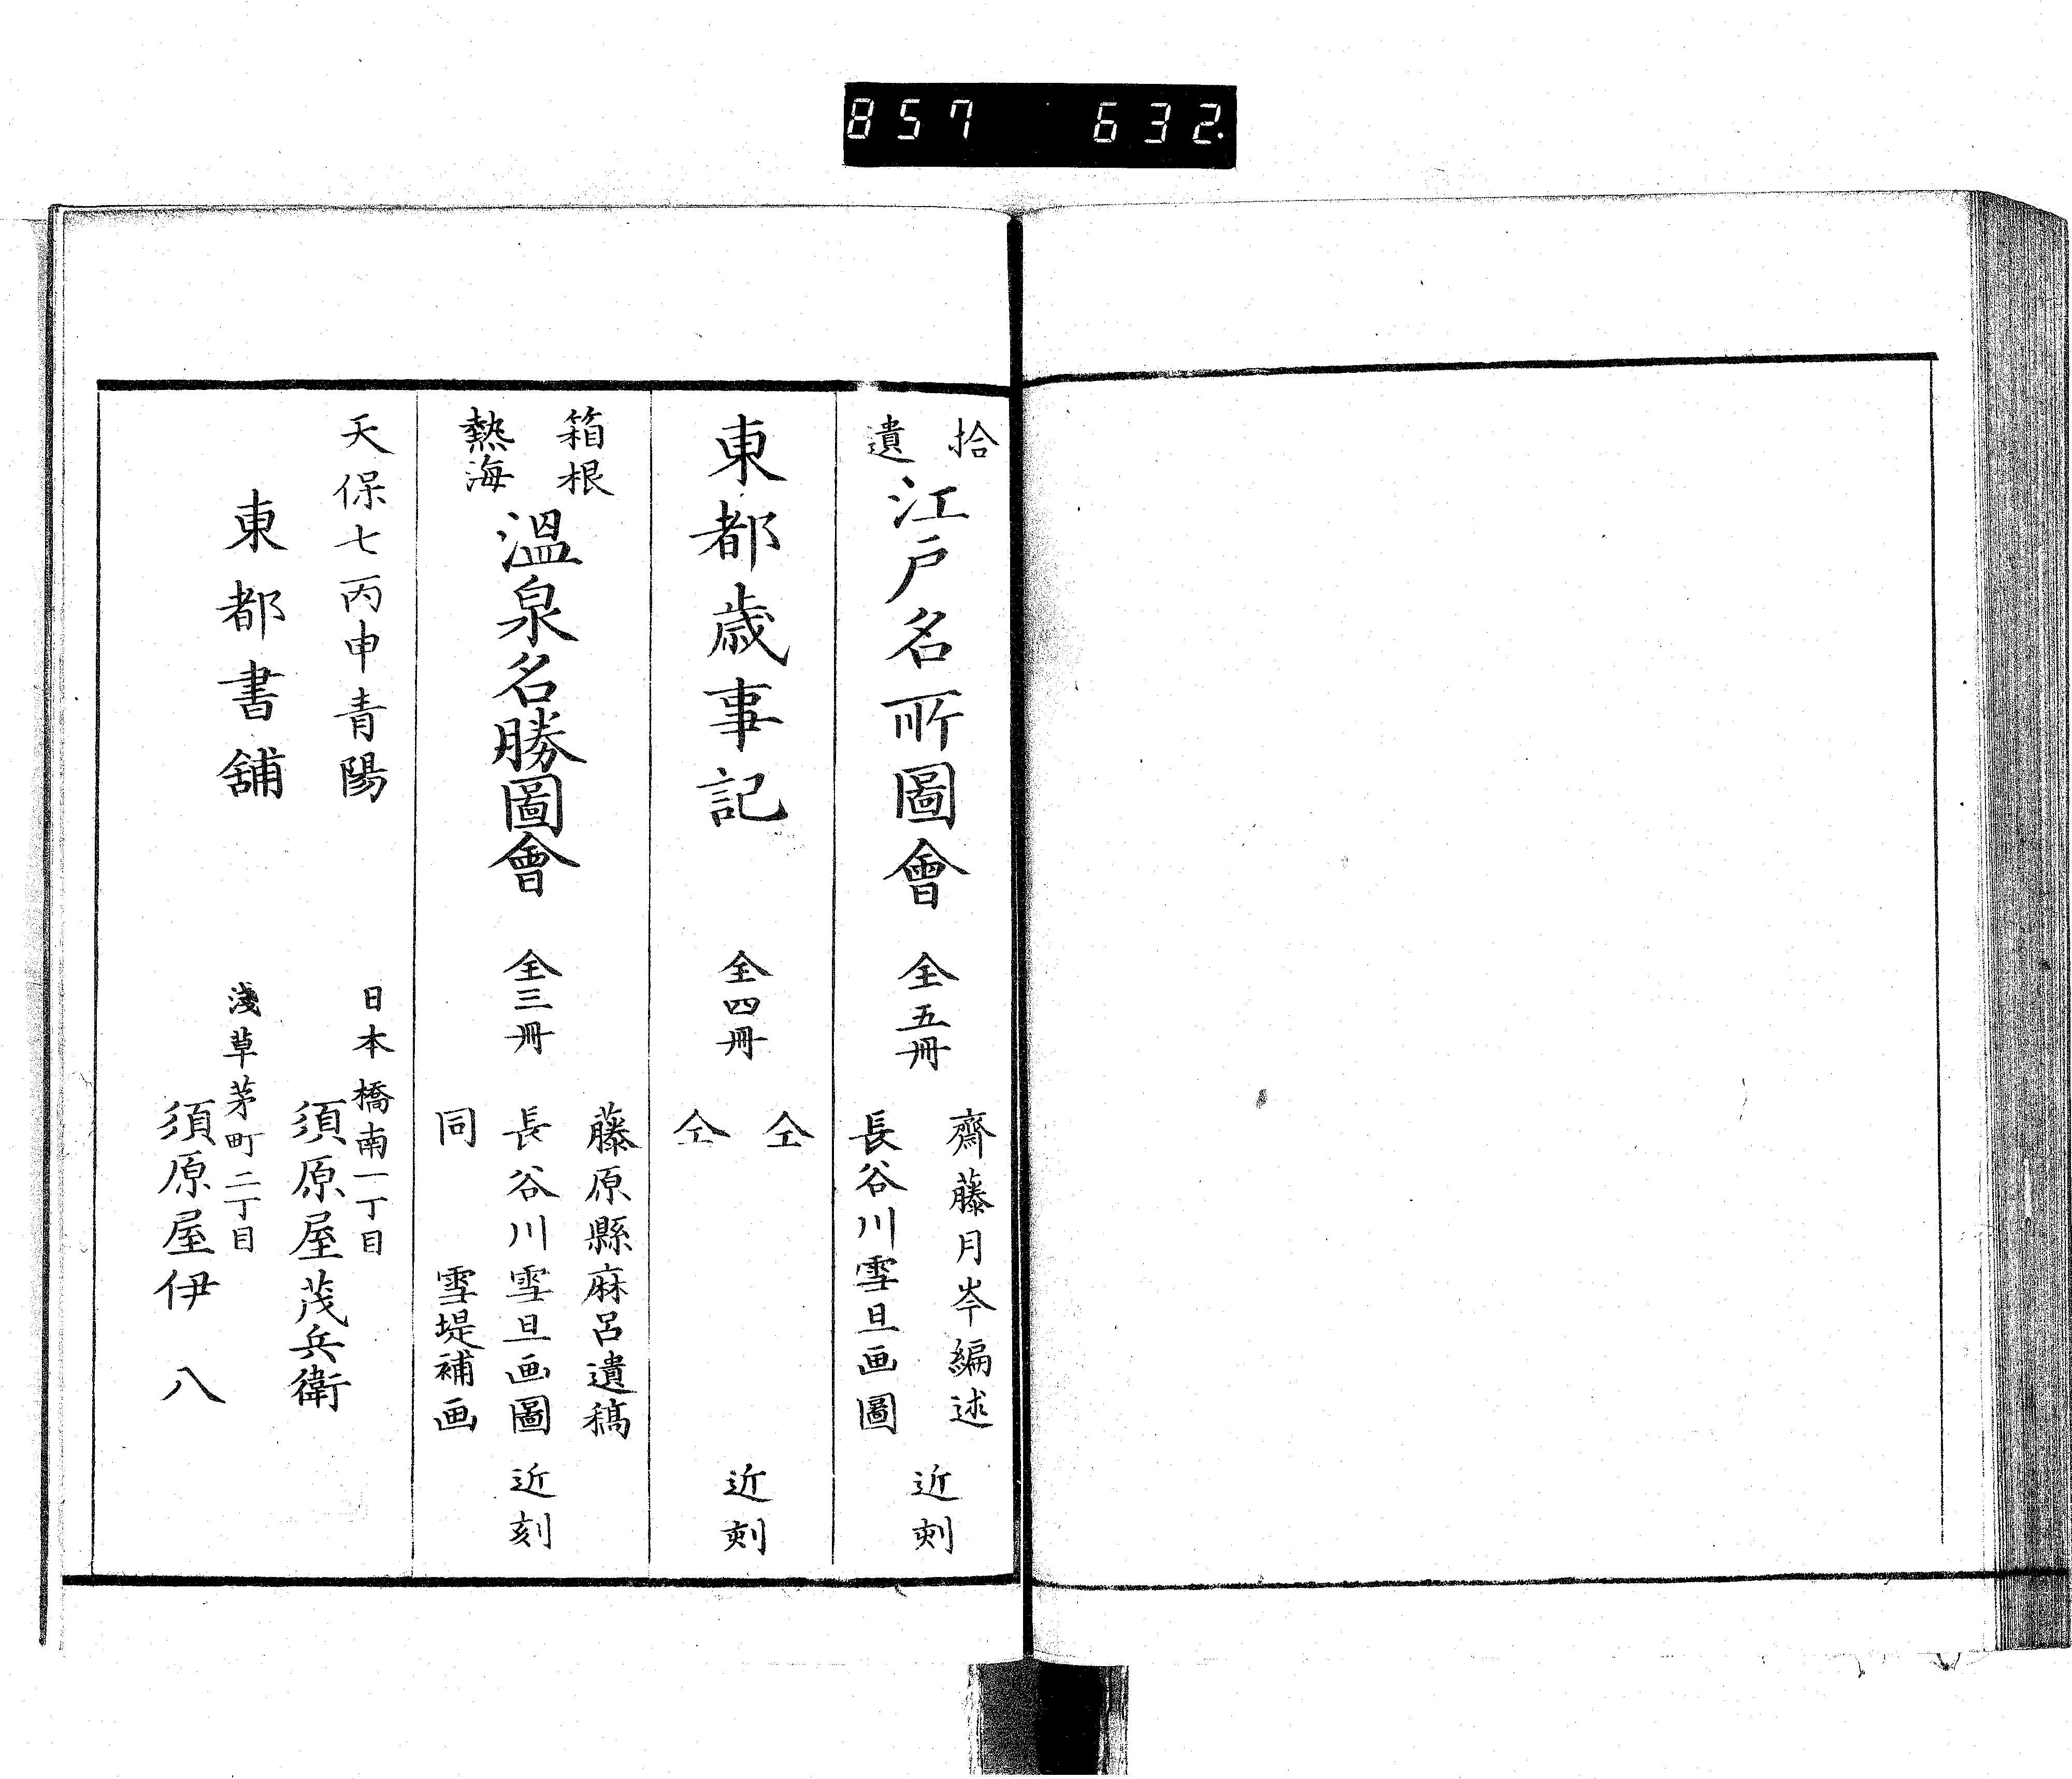 857 632
拾遺
江戸名所圖會
全五冊
齋藤月岑編述
長谷川雪旦画圖
近刻
東都歳事記
全四冊
仝
仝
近刻
箱根
熱海
溫泉名勝圖會
全三冊
藤原縣麻呂遺稿
長谷川雪旦画圖
同 雪堤補画
近刻
天保七丙申青陽
東都書舖
日本橋南一丁目
須原屋茂兵衛
淺草茅町二丁目
須原屋伊八